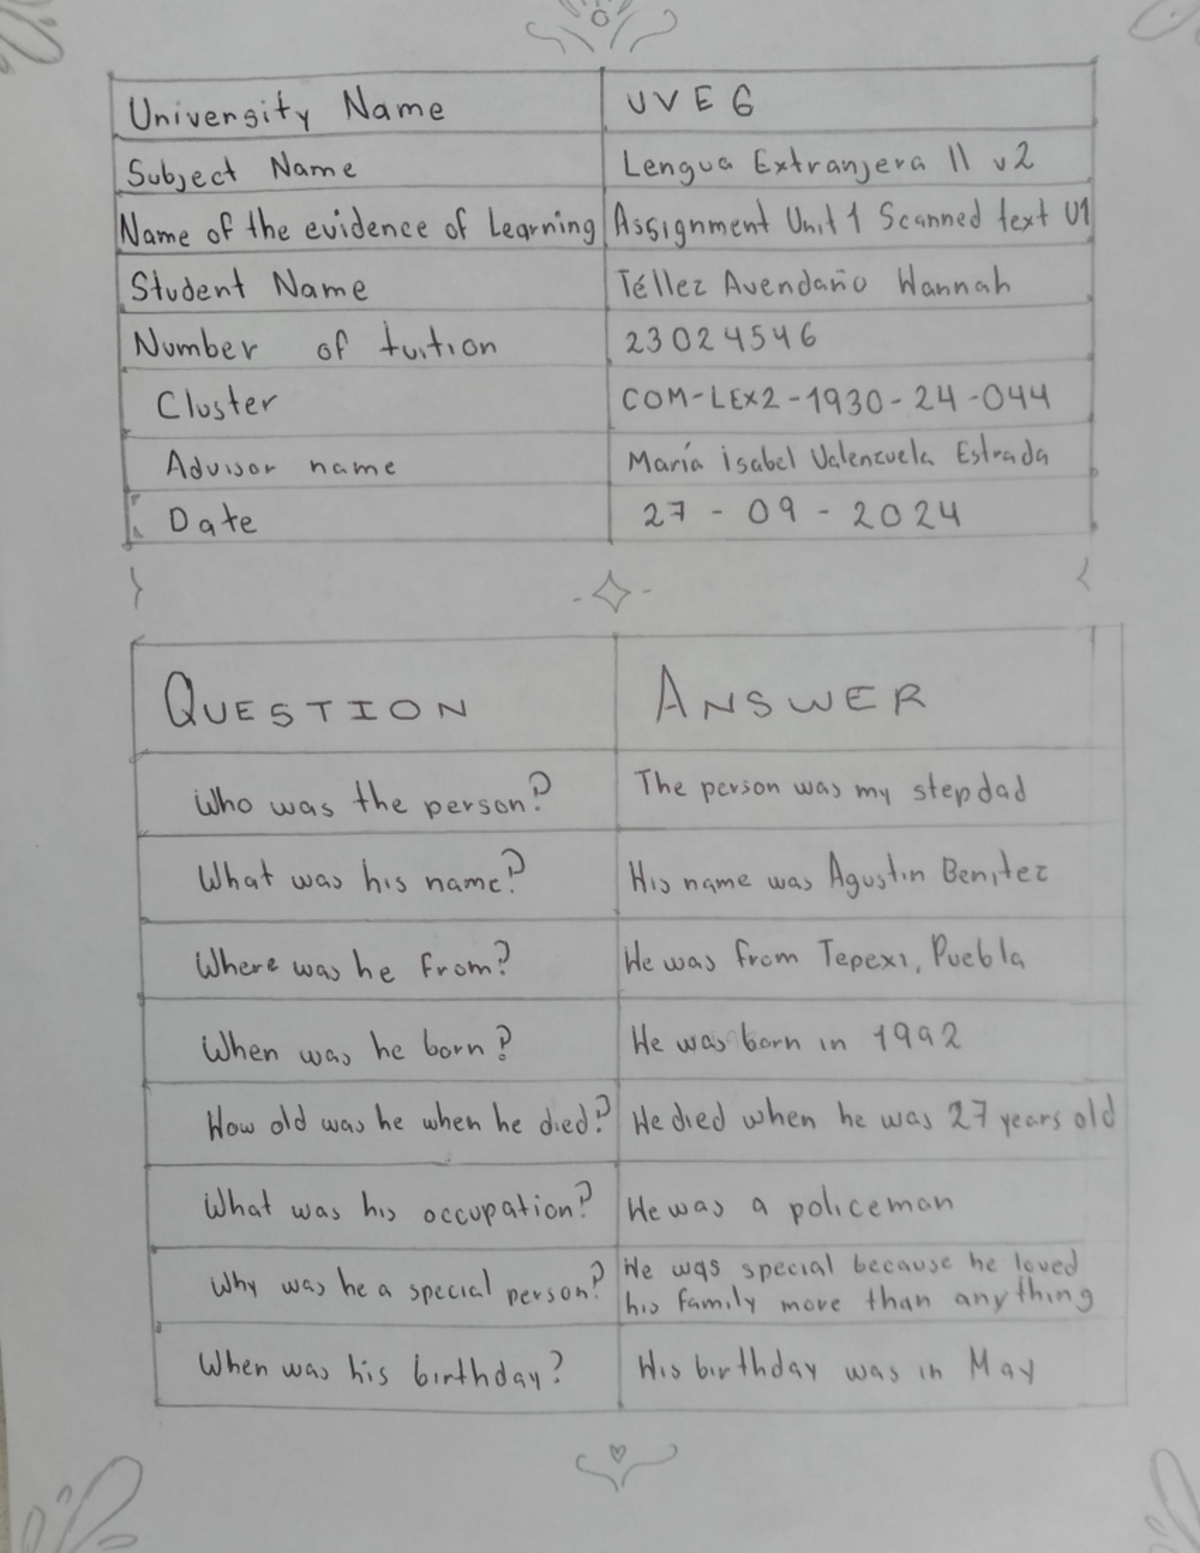 University Name UVEG
Subject Name Lengua Extranjera II v2
Name of the evidence of Learning Assignment Unit 1 Scanned text U1
Student Name Téllez Avendaño Hannah
Number of tuition 23024546
Cluster COM-LEX2-1930-24-044
Advisor name María isabel Valenzuela Estrada
Date 27-09-2024
QUESTION ANSWER
Who was the person? The person was my stepdad
What was his name? His name was Agustin Benitez
Where was he from? He was from Tepexi, Puebla
When was he born? He was born in 1992
How old was he when he died? He died when he was 27 years old
What was his occupation? He was a policeman
Why was he a special person? He was special because he loved
his family more than anything
When was his birthday? His birthday was in May